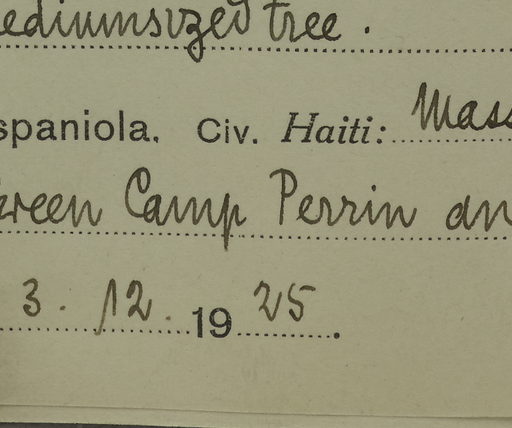 ediumsized tree.
spaniola. Civ. Haiti: Mass
ween Camp Perrin an
3. 12. 1925.